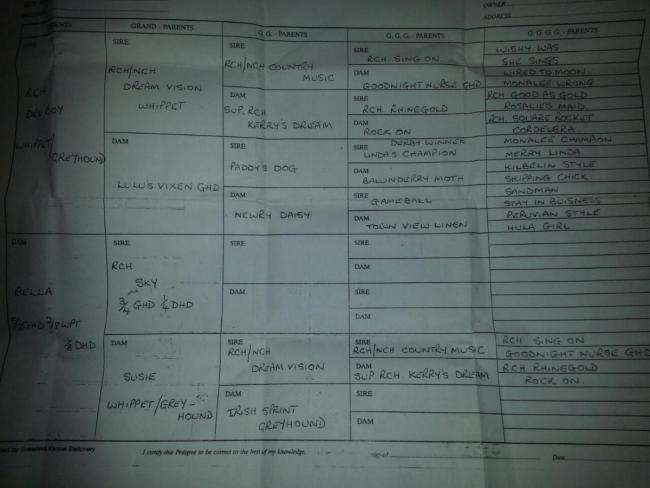 OWNER
ADDRESS
PARENTS GRAND - PARENTS G. - PARENTS G. G. - PARENTS G. G. G. - PARENTS
SIRE
RCH
DELBOY
WHIPPET/
GREYHOUND
DAM
BELLA
DHD
SIRE
RCH/NCH
DREAM VISION
WHIPPET
DAM
LULU'S VIXEN GHD
SIRE
RCH
SKY
3/4 GHD 1/4 DHD
DAM
SUSIE
WHIPPET/GREY-
HOUND
SIRE
RCH/NCH COUNTRY
MUSIC
DAM
SUP. RCH
KERRY'S DREAM
SIRE
PADDY'S DOG
DAM
NEWRY DAISY
SIRE
DAM
SIRE
RCH/NCH
DREAM VISION
DAM
IRISH SPRINT
GREYHOUND
SIRE
RCH SING ON
DAM
GOODNIGHT NURSE GHD
SIRE
RCH RHINEGOLD
DAM
ROCK ON
SIRE DERBY WINNER
LINDA'S CHAMPION
DAM
BALLINDERRY MOTH
SIRE
GAMEBALL
DAM
TOWN VIEW LINEN
SIRE
DAM
SIRE
DAM
SIRE
RCH/NCH COUNTRY MUSIC
DAM
SUP RCH. KERRY'S DREAM
SIRE
DAM
WISHY WAS
SHE SINGS
WIRED TO MOON
MONALEE WRONG
RCH GOOD AS GOLD
ROSALIES MAID
RCH. SQUARE ROCKET
CORDELERA
MONALEE CHAMPION
MERRY LINDA
KILBELIN STYLE
SKIPPING CHICK
SANDMAN
STAY IN BUISNESS
PERUVIAN STYLE
HULA GIRL
RCH SING ON
GOODNIGHT NURSE GHD
RCH RHINEGOLD
ROCK ON
Kennel Stationery
I certify this Pedigree to be correct to the best of my knowledge.
Signed
Date